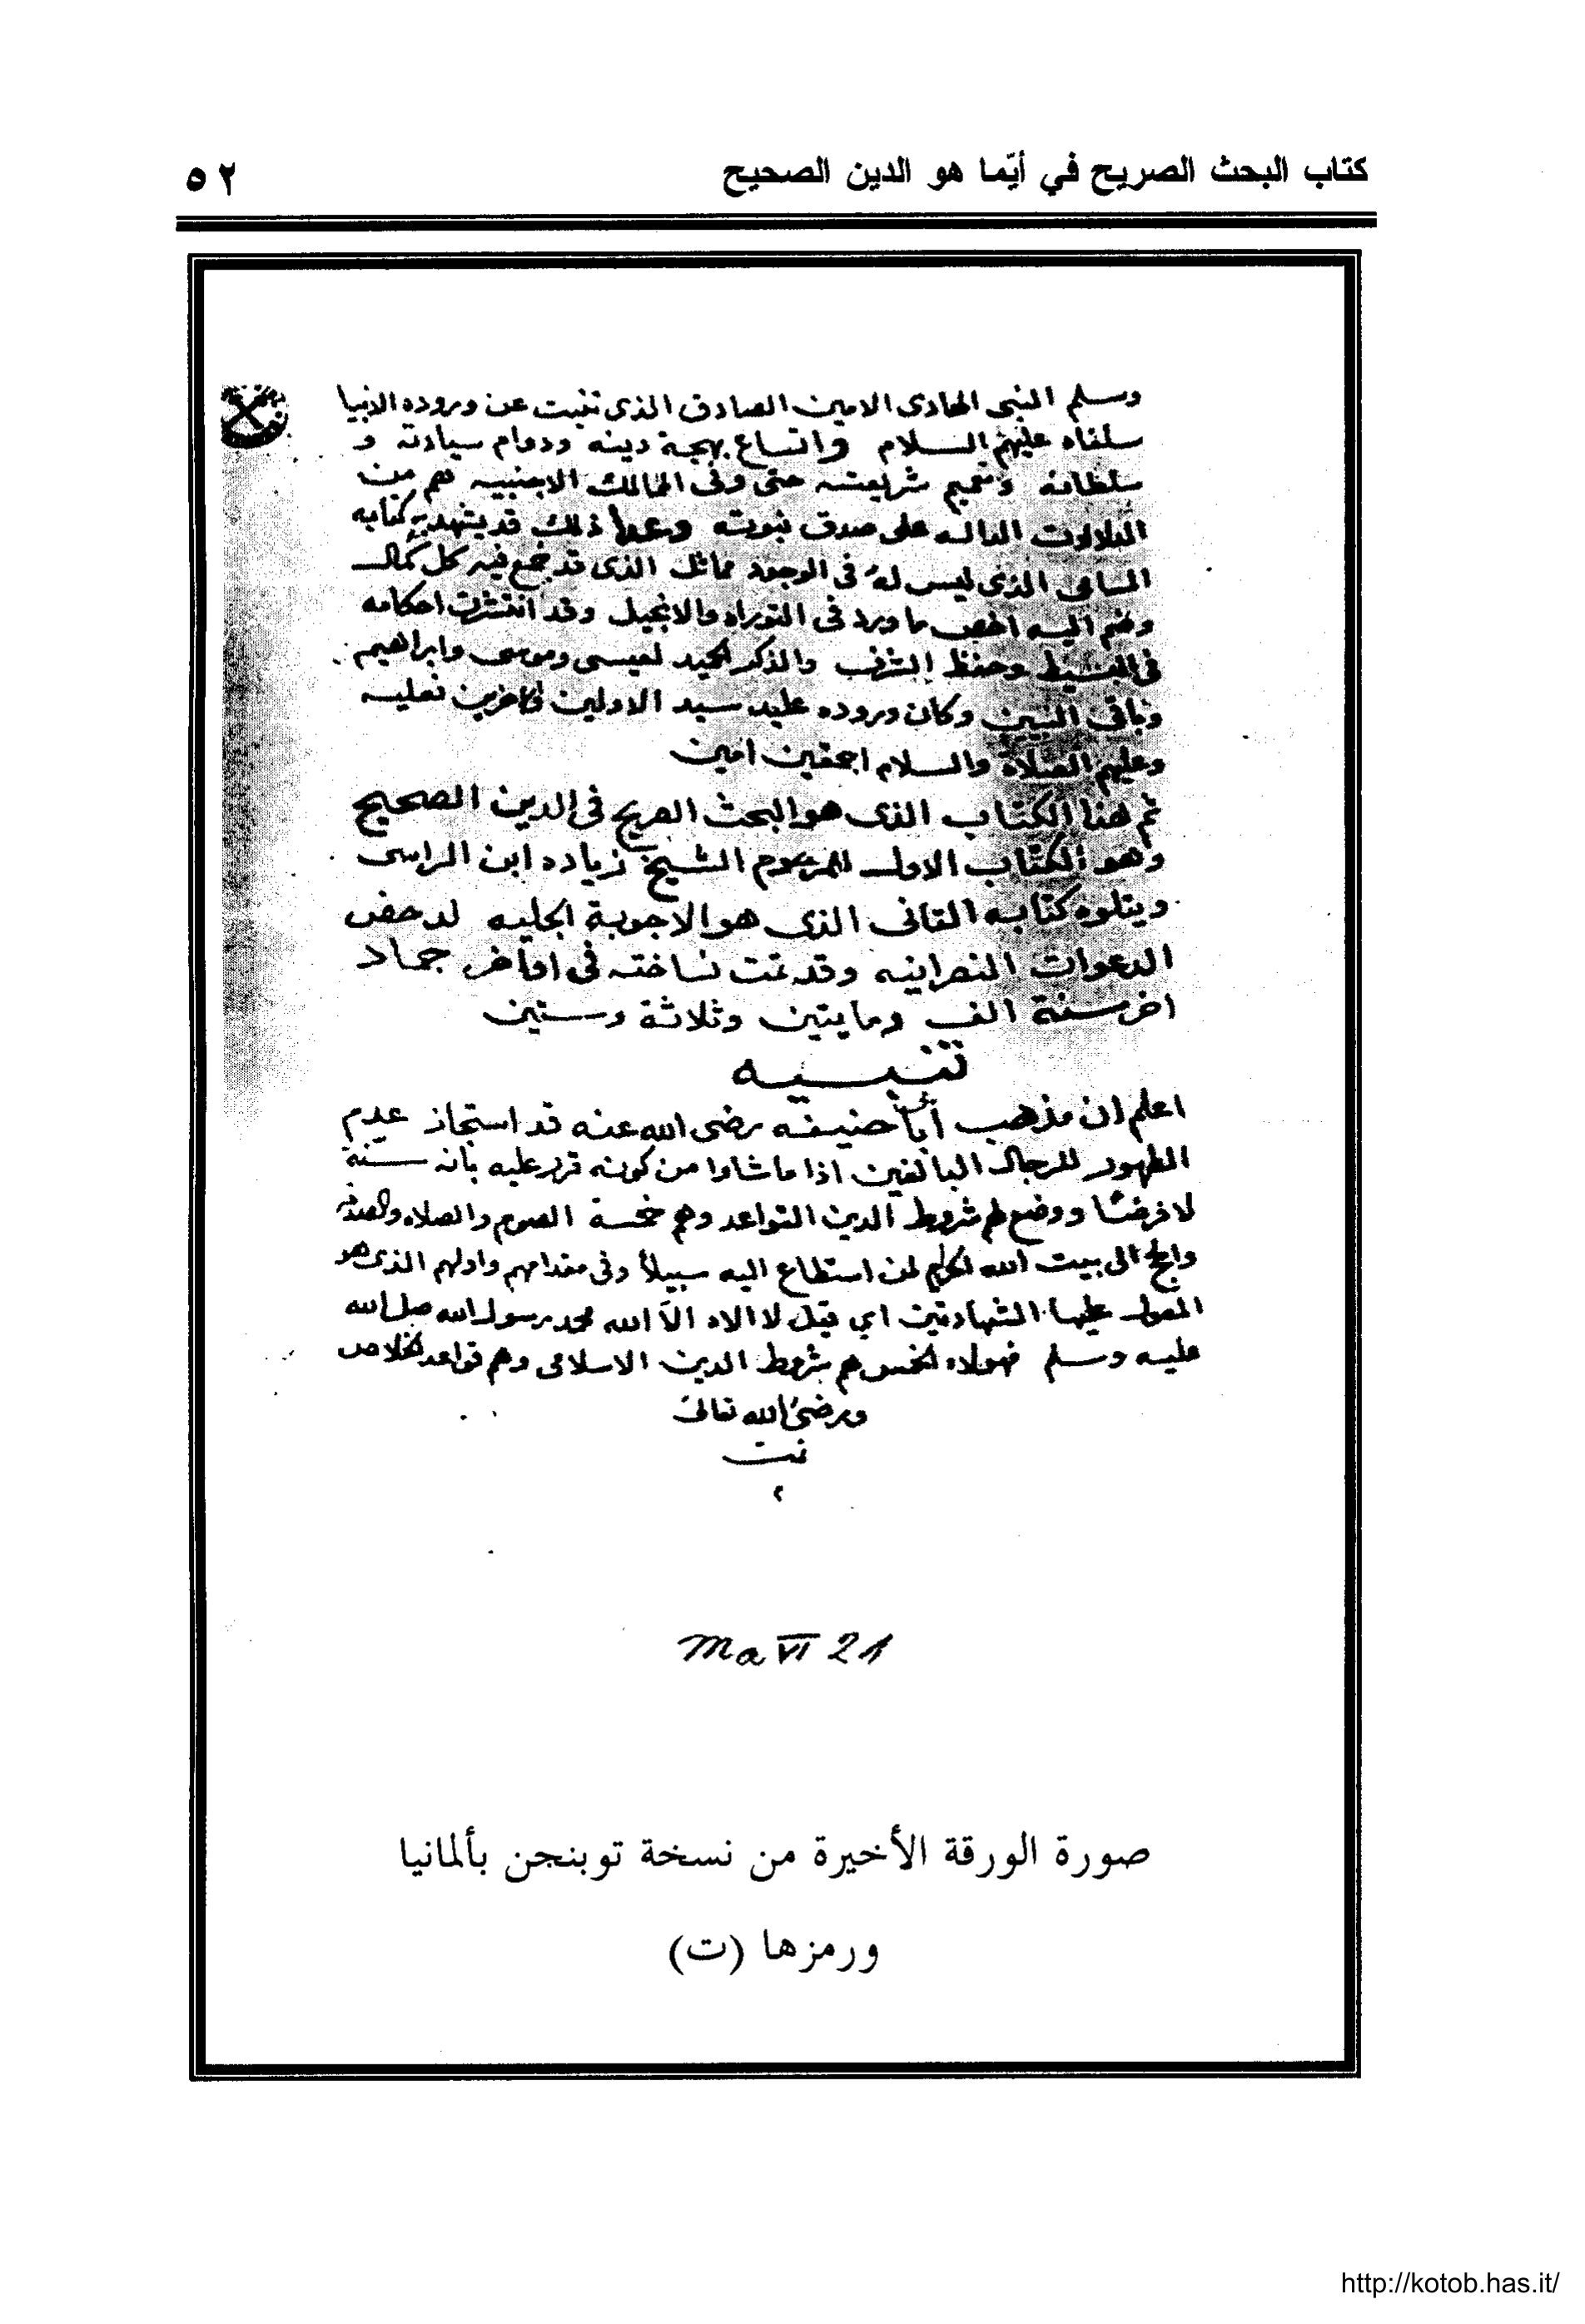 كتاب البحث الصريح في أيّما هو الدين الصحيح
٥٢
وسلم النبى الهادى الامين الصادق الذى تنبت عن وروده الانبيا
سلفاه عليهم السلام واتساع بهجة دينه ودوام سيادته و
سلطانه وتتميم شريعته حتى وفى الممالك الاجنبيه هم من
الدلالات الداله على صدق نبوته وعدا ذلك قد يشهد به كتابه
السامى الذى ليس له فى الوجود مماثل الذى قد جمع فيه كل كمال
وضم اليه اخص ما ورد فى التوراه والانجيل وقد انتشرت احكامه
فى البسيط وحفظ الشرف والذكر الحميد لعيسى وموسى وابراهيم
وباقى النبيين وكان وروده عليه سيد الاولين والاخرين فعليه
وعليهم الصلاة والسلام اجمعين امين
تم هذا الكتاب الذى هو البحث الصريح فى الدين الصحيح
وهو الكتاب الاول للمرحوم الشيخ زياده ابن الراسى
ويتلوه كتابه التانى الذى هو الاجوبة الجليه لدحض
الدعوات النصرانيه وقد تمت نساخته فى اواخر جماد
اخر سنة الف ومايتين وثلاثة وستين
تنبيه
اعلم ان مذهب أبا حنيفه رضى الله عنه قد استجاز عدم
الطهور للرجال البالغين اذا ما شاوا من كونه قرر عليه بانه سنة
لا فرضًا ووضع لهم شروط الدين القواعد وهم خمسة الصوم والصلاه والصدقه
والحج الى بيت الله الحرام لمن استطاع اليه سبيلاً وفى مقدامهم واولهم الذى هو
المعول عليها الشهادتين اي قيل لا الاه الاّ الله محمد رسول الله صلى الله
عليه وسلم فهولاء الخمس هم شروط الدين الاسلامى وهم قواعد الخلاص
ورضىُ الله تعالى
تمت
م
Ma VI 21
صورة الورقة الأخيرة من نسخة توبنجن بألمانيا
ورمزها (ت)
http://kotob.has.it/